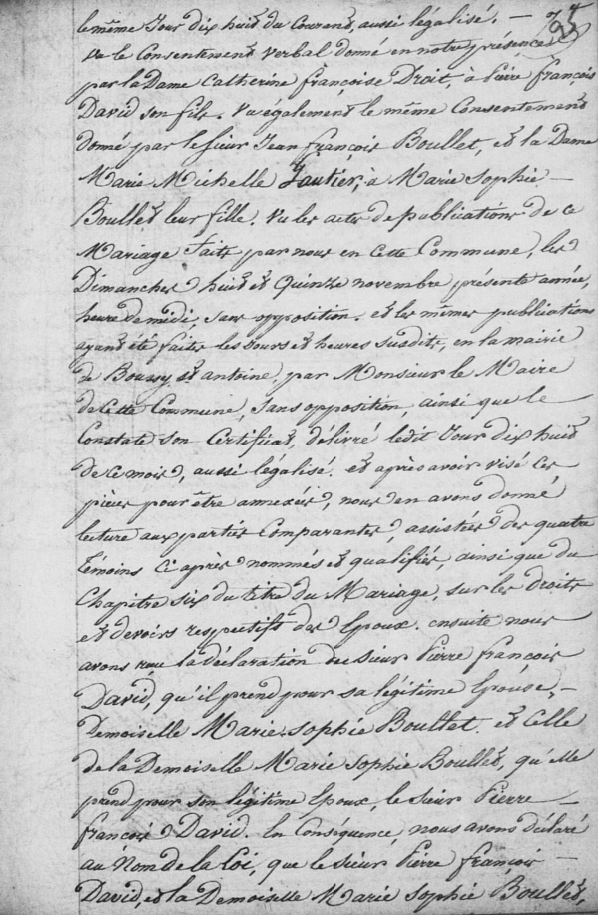 le même Jour dix huit du Courent, aussi légalisé. —
Vu le Consentement verbal donné en notre présence
par la Dame Catherine françoise Droit, à Pierre françois
David son fils. Vu également le même Consentement
donné par le sieur Jean françois Boullet, et la Dame
Marie Michelle Gautier, à Marie Sophie —
Boullet leur fille. Vu les acts de publications de ce
Mariage faits par nous en Cette Commune, les
Dimanches huit et Quinze novembre présente année,
heure de midi, sans opposition. et les mêmes publications
ayant été faites les Jours et heures susdits, en la mairie
de Boussy st antoine, par Monsieur le Maire
de Cette Commune, sans opposition, ainsi que le
Constate son Certificat, délivré ledit Jour dix huit
de ce mois, aussi légalisé. et après avoir visé ces
pièces pour être annexées, nous en avons donné
lecture aux parties Comparantes, assistées des quatre
témoins Ci après nommés et qualifiés, ainsi que du
Chapitre six du titre du Mariage, sur les droits
et devoirs respectifs des Epoux. ensuite nous
avons reçu la déclaration du sieur Pierre françois
David, qu'il prend pour sa légitime Epouse, —
Demoiselle Marie Sophie Boullet. et Celle
de la Demoiselle Marie Sophie Boullet, qu'elle
prend pour son légitime Epoux, le sieur Pierre —
françois David. En Conséquence, nous avons déclaré
au Nom de la Loi, que le sieur Pierre françois —
David, et la Demoiselle Marie Sophie Boullet,